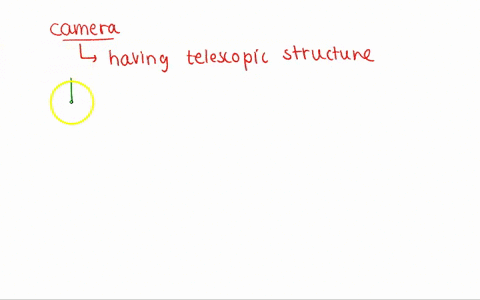 camera
↳ having telescopic structure